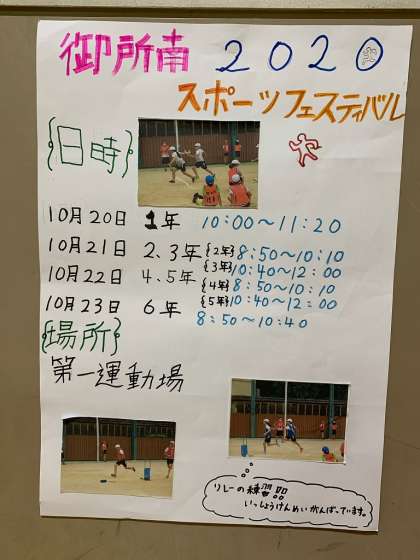 御所南 2020
スポーツフェスティバル
{日時}
10月20日 1年 10:00〜11:20
10月21日 2、3年 {2年} 8:50〜10:10
{3年} 10:40〜12:00
10月22日 4、5年 {4年} 8:50〜10:10
{5年} 10:40〜12:00
10月23日 6年 8:50〜10:40
{場所}
第一運動場
リレーの練習!!
いっしょうけんめいがんばっています。